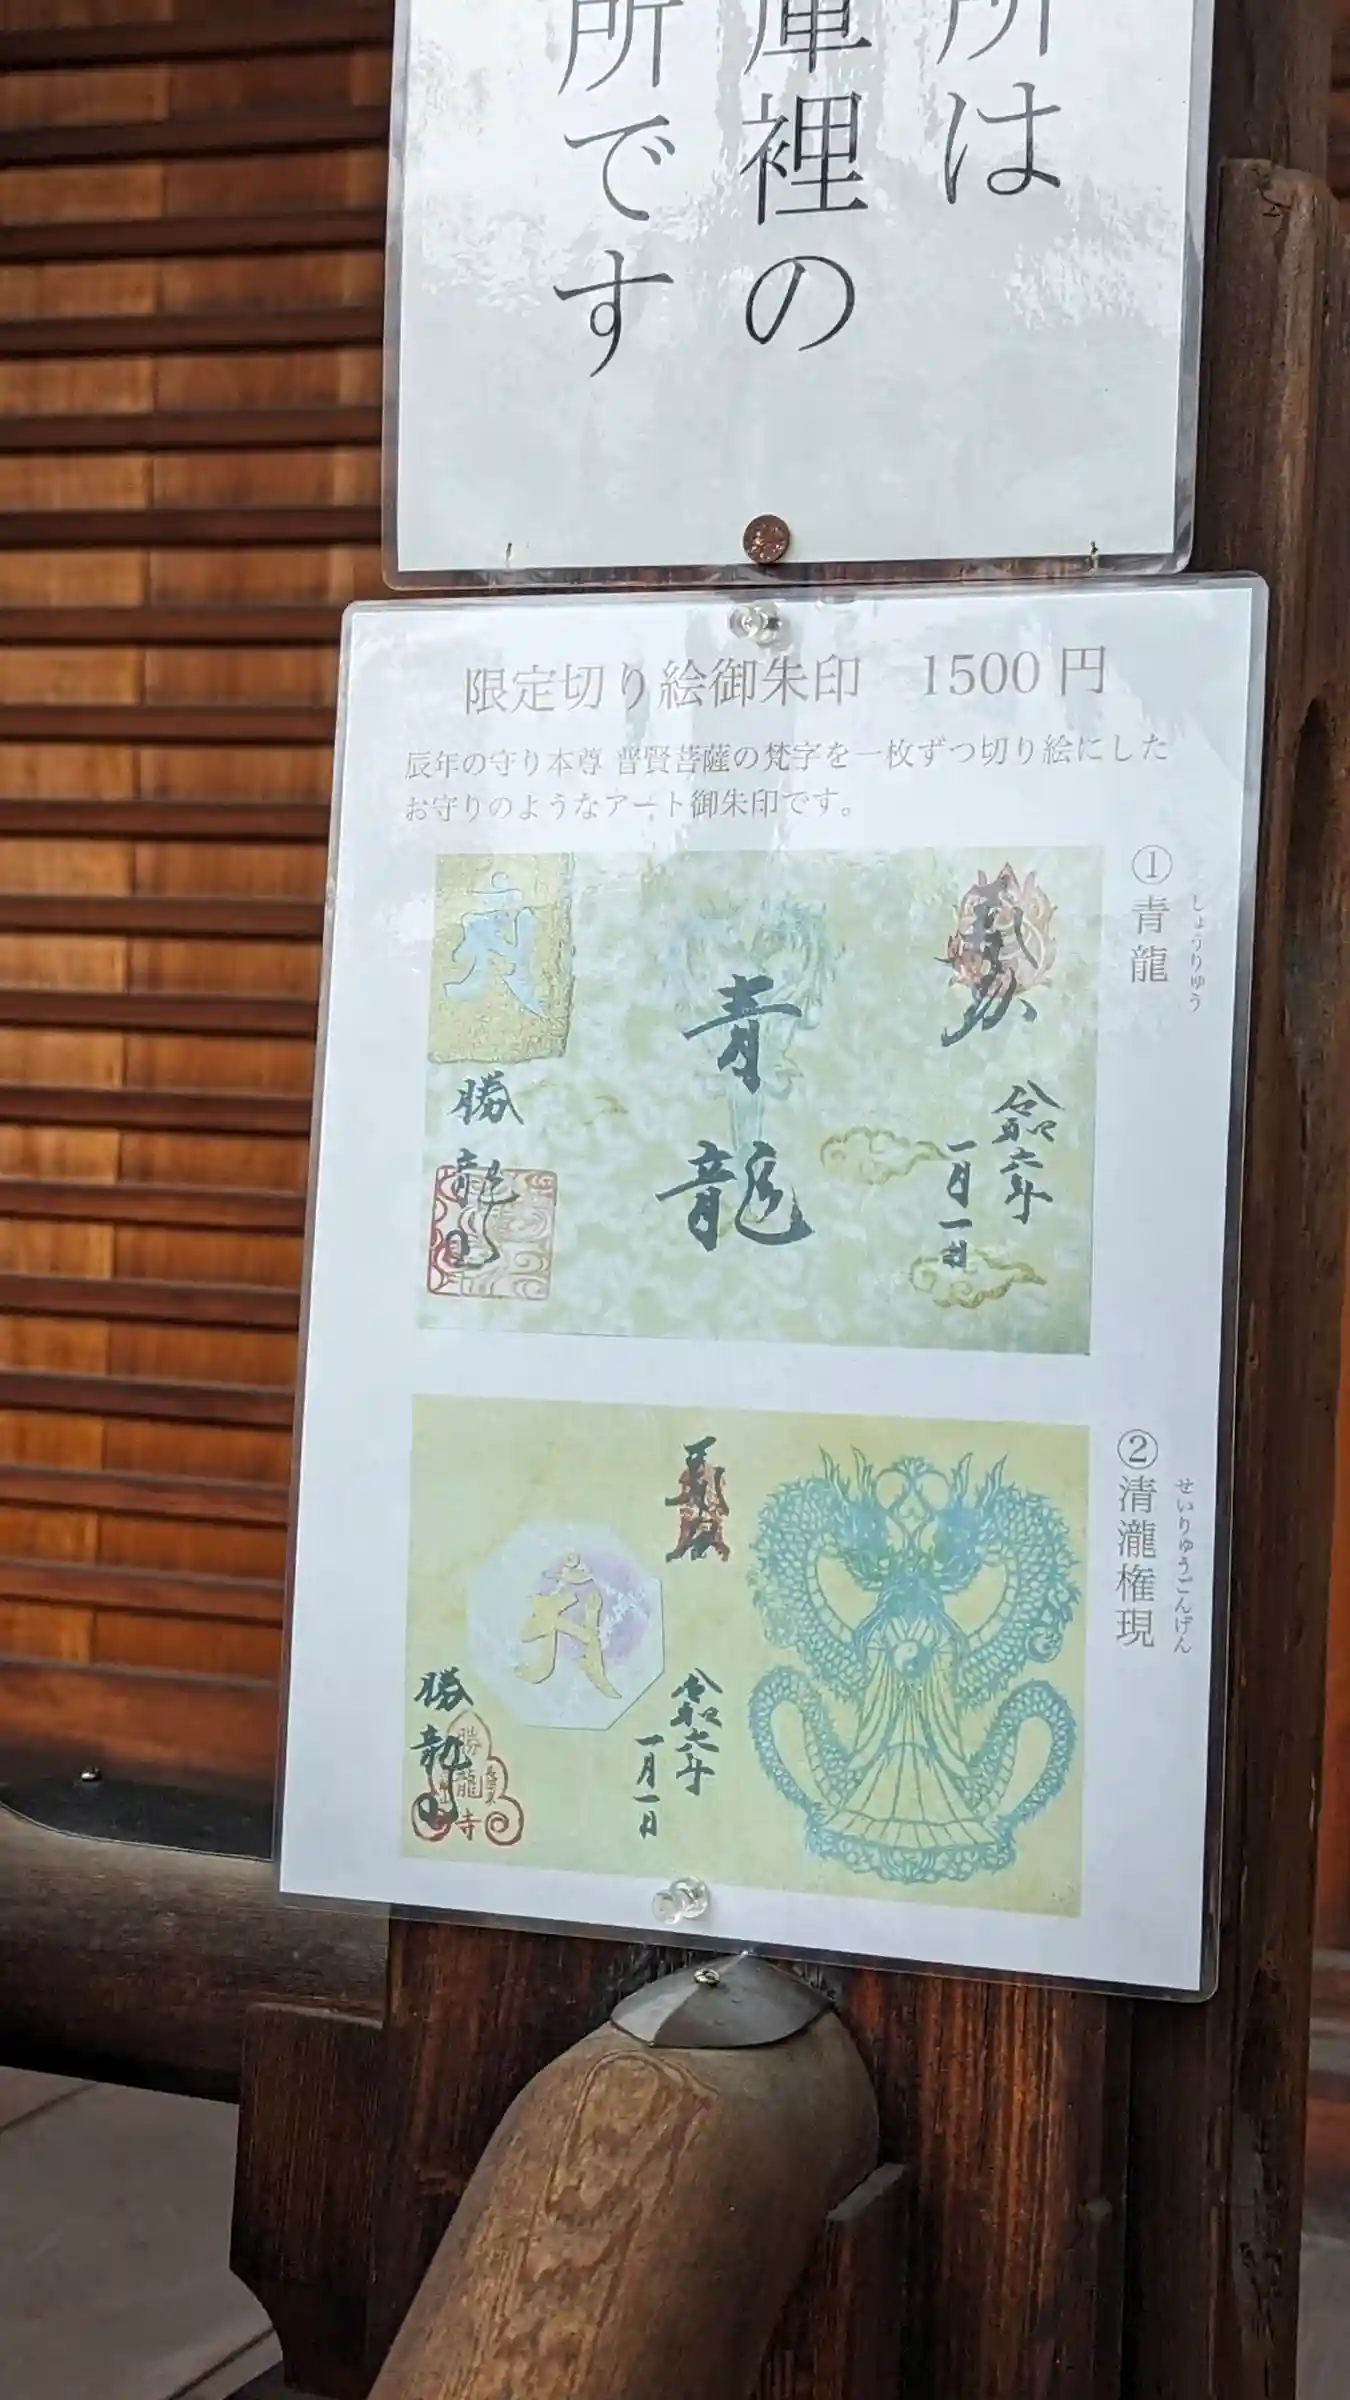 所は
庫裡の
所です
限定切り絵御朱印　1500 円
辰年の守り本尊 普賢菩薩の梵字を一枚ずつ切り絵にした
お守りのようなアート御朱印です。
①青龍
しょうりゅう
奉拝
令和六年
一月一日
青龍
勝龍寺
②清瀧権現
せいりゅうごんげん
奉拝
令和六年
一月一日
勝龍寺
勝龍寺